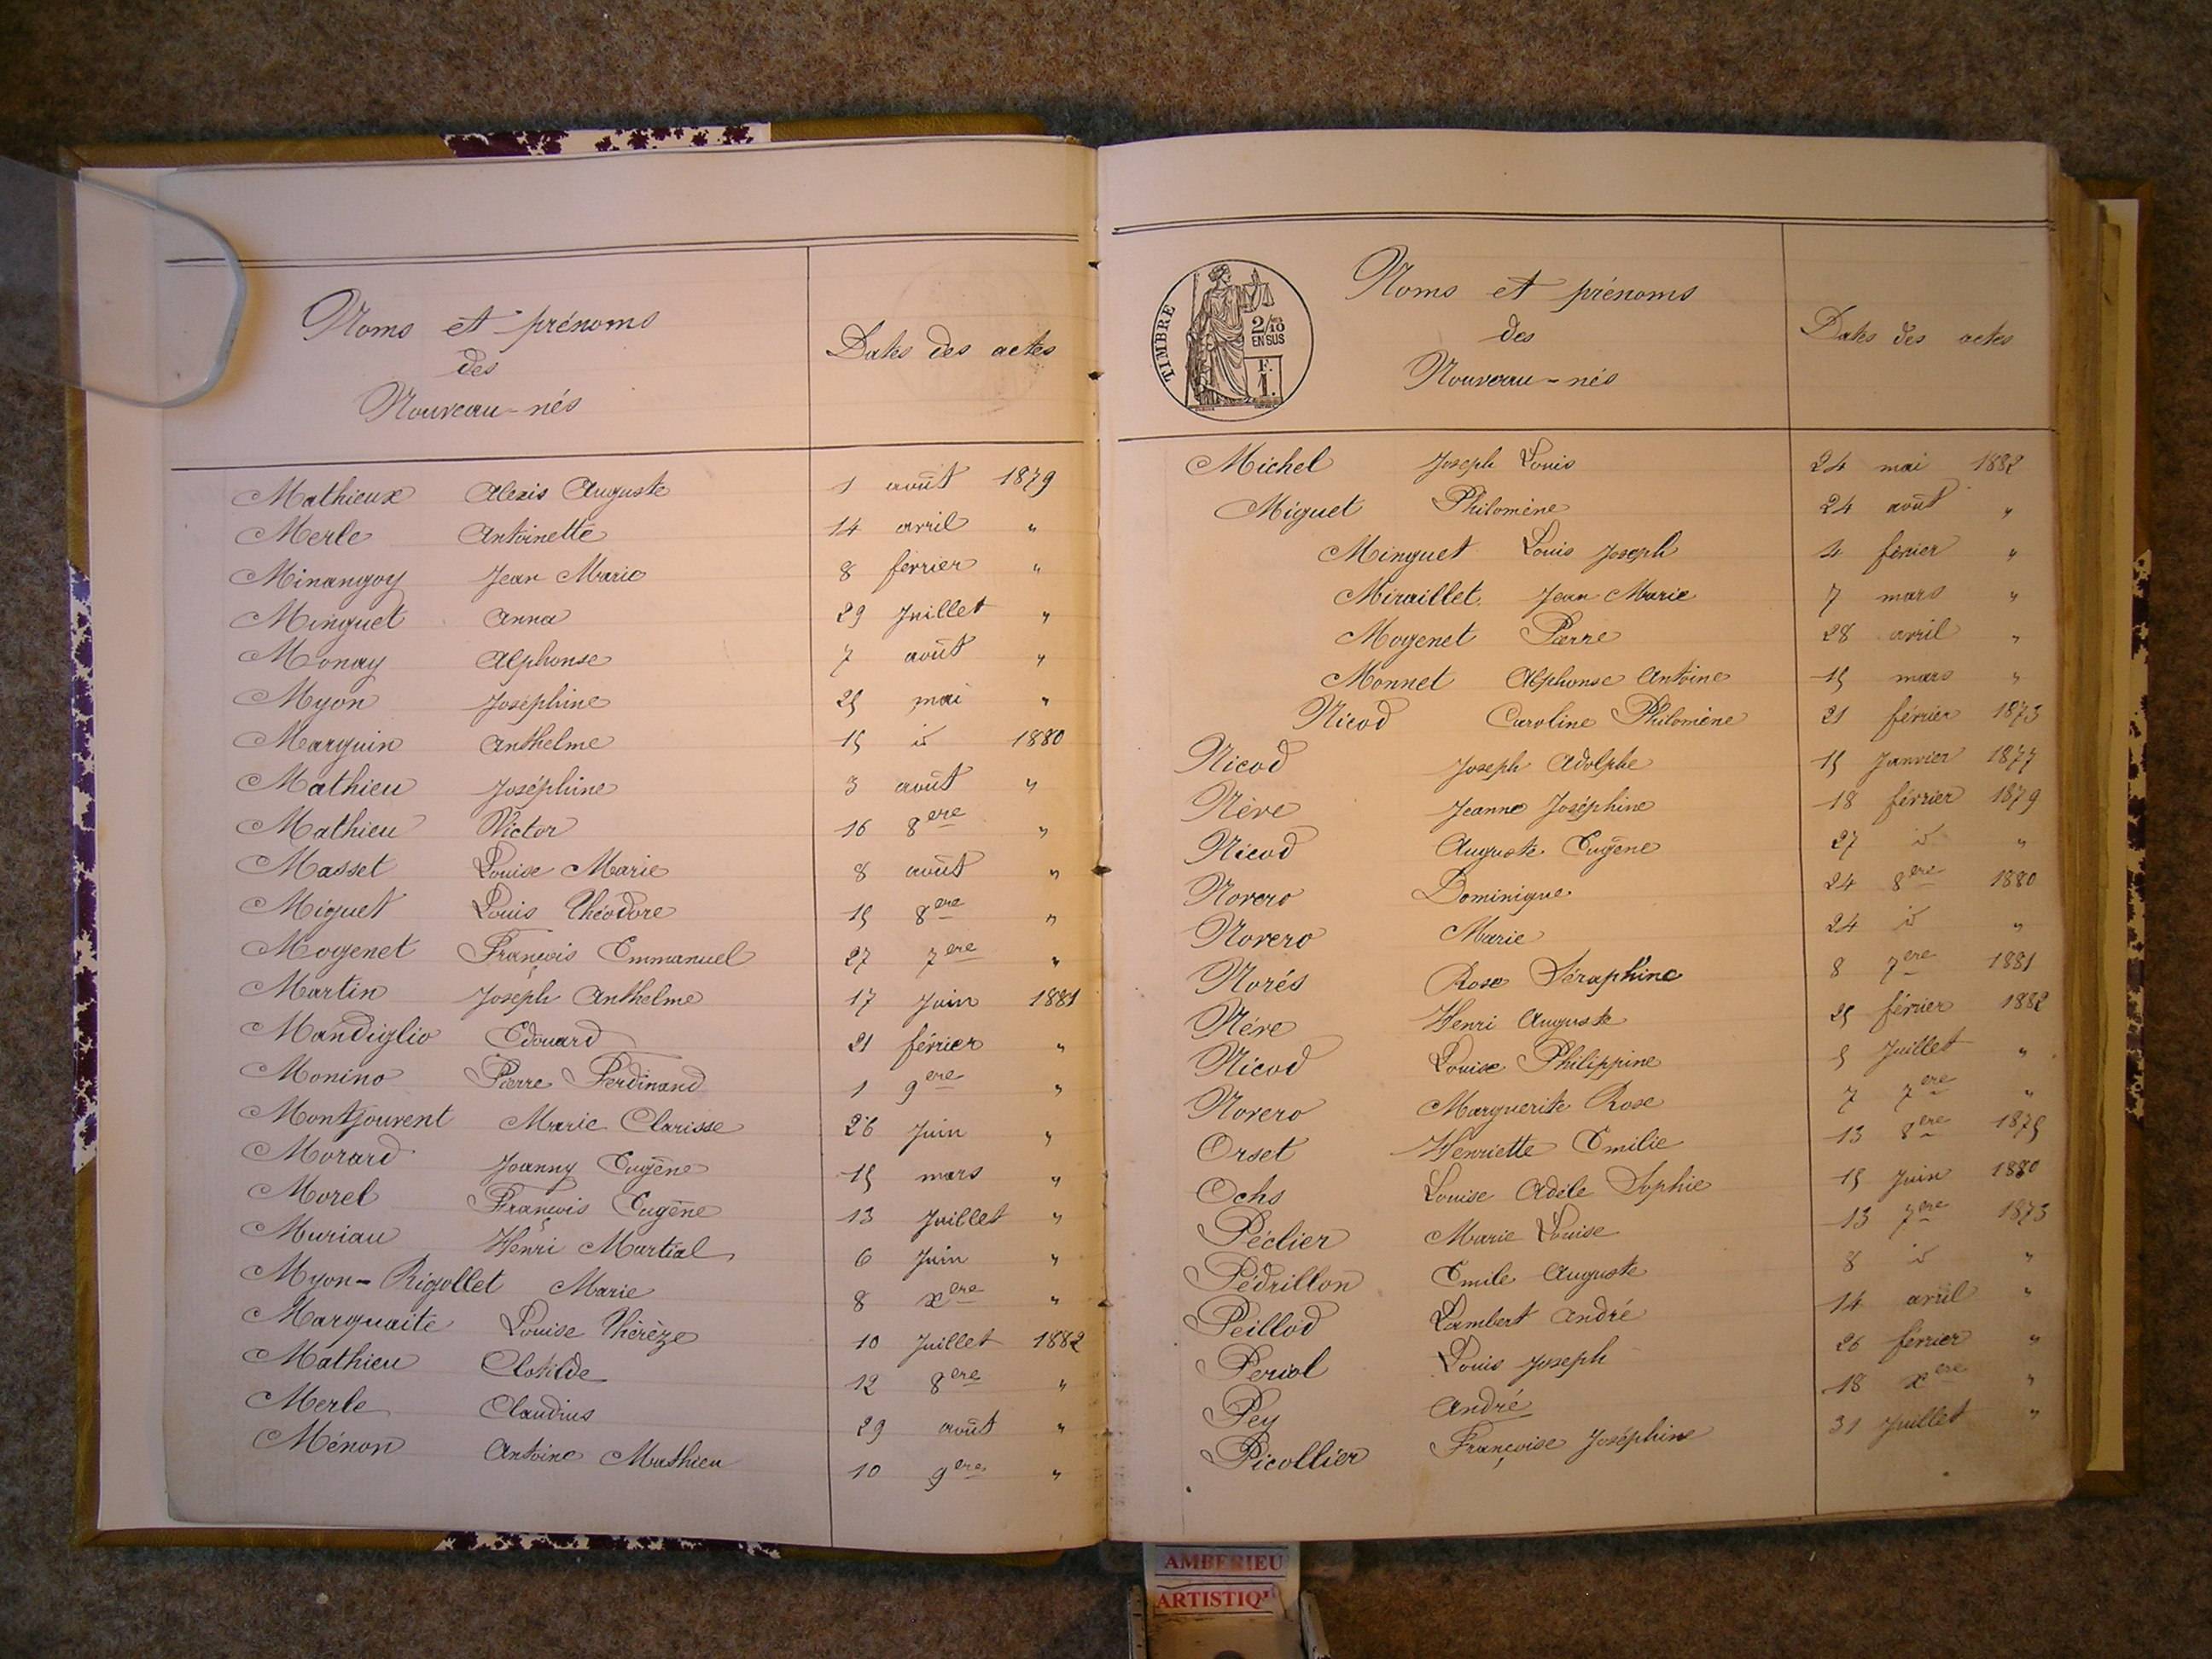 Noms et prénoms
des
Nouveau-nés
Dates des actes
Mathieux Alexis Auguste 1 août 1879
Merle Antoinette 14 avril "
Minangoy Jean Marie 8 février "
Minguet Anna 29 Juillet "
Monay Alphonse 7 août "
Myon Joséphine 25 mai "
Marguin Anthelme 15 id 1880
Mathieu Joséphine 3 août "
Mathieu Victor 16 8ere "
Masset Louise Marie 8 août "
Miguet Louis Théodore 15 8ere "
Mogenet François Emmanuel 27 7ere "
Martin Joseph Anthelme 17 Juin 1881
Mandiglio Edouard 21 février "
Monino Pierre Ferdinand 1 9ere "
Montjouvent Marie Clarisse 26 Juin "
Morard Joanny Eugène 15 mars "
Morel François Eugène 13 Juillet "
Muriau Henri Martial 6 Juin "
Myon-Rigollet Marie 8 xere "
Marguaite Louise Thérèze 10 Juillet 1882
Mathieu Clotilde 12 8ere "
Merle Claudius 29 août "
Ménon Antoine Mathieu 10 9ere "
TIMBRE
2/10
EN SUS
F.
1.
Noms et prénoms
des
Nouveau-nés
Dates des actes
Michel Joseph Louis 24 mai 1882
Miguet Philomène 24 août "
Minguet Louis Joseph 4 février "
Miraillet Jean Marie 7 mars "
Mogenet Pierre 28 avril "
Monnet Alphonse Antoine 15 mars "
Nicod Caroline Philomène 21 février 1873
Nicod Joseph Adolphe 15 Janvier 1877
Nève Jeanne Joséphine 18 février 1879
Nicod Auguste Eugène 27 id "
Novero Dominique 24 8ere 1880
Novero Marie 24 id "
Norés Rose Séraphine 8 7ere 1881
Néve Henri Auguste 25 février 1882
Nicod Louise Philippine 5 Juillet "
Novero Marguerite Rose 7 7ere "
Orset Henriette Emilie 13 8ere 1875
Ochs Louise Adèle Sophie 15 Juin 1880
Péclier Marie Louise 13 7ere 1873
Pédrillon Emile Auguste 8 id "
Peillod Lambert André 14 avril "
Periol Louis Joseph 26 février "
Pey André 18 xere "
Picollier Françoise Joséphine 31 Juillet "
AMBERIEU
ARTISTIQU